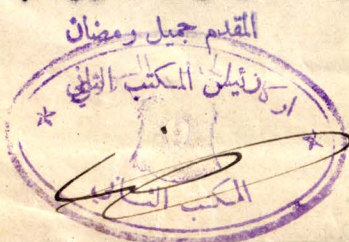 المقدم جميل رمضان
اركان رئيس المكتب الثاني
المكتب الثاني